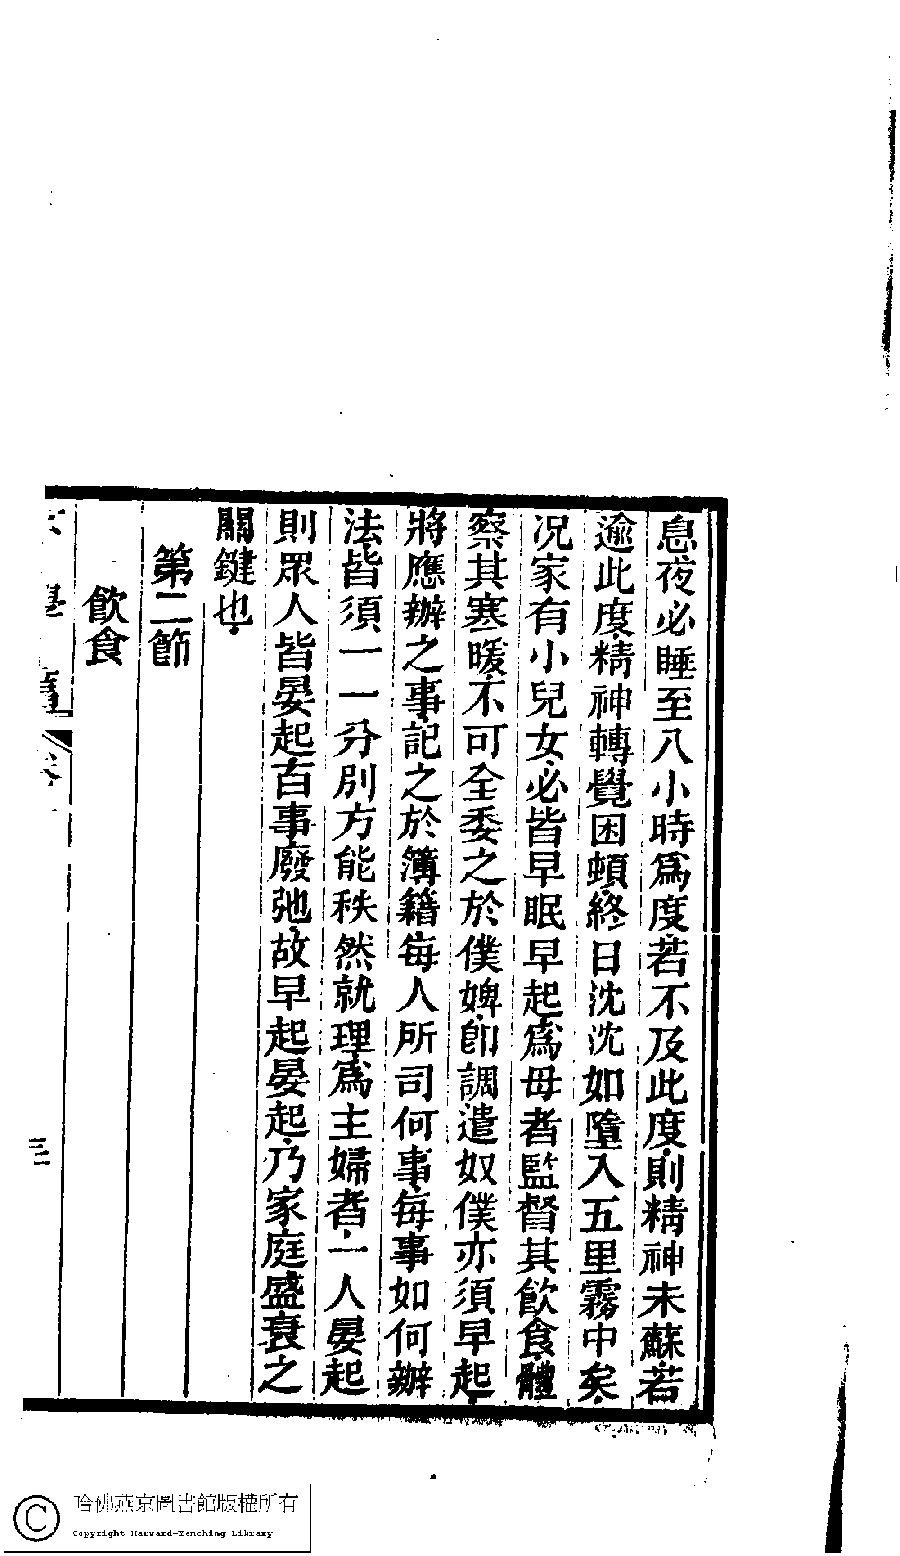 息夜必睡至八小時爲度若不及此度則精神未蘇若
逾此度精神轉覺困頓終日沈沈如墮入五里霧中矣
况家有小兒女必皆早眠早起爲母者監督其飮食體
察其寒暖不可全委之於僕婢卽調遣奴僕亦須早起
將應辦之事記之於簿籍每人所司何事每事如何辦
法皆須一一分別方能秩然就理爲主婦者一人晏起
則眾人皆晏起百事廢弛故早起晏起乃家庭盛衰之
關鍵也
第二節
飮食
三
哈佛燕京圖書館版權所有
Copyright Harvard-Yenching Library